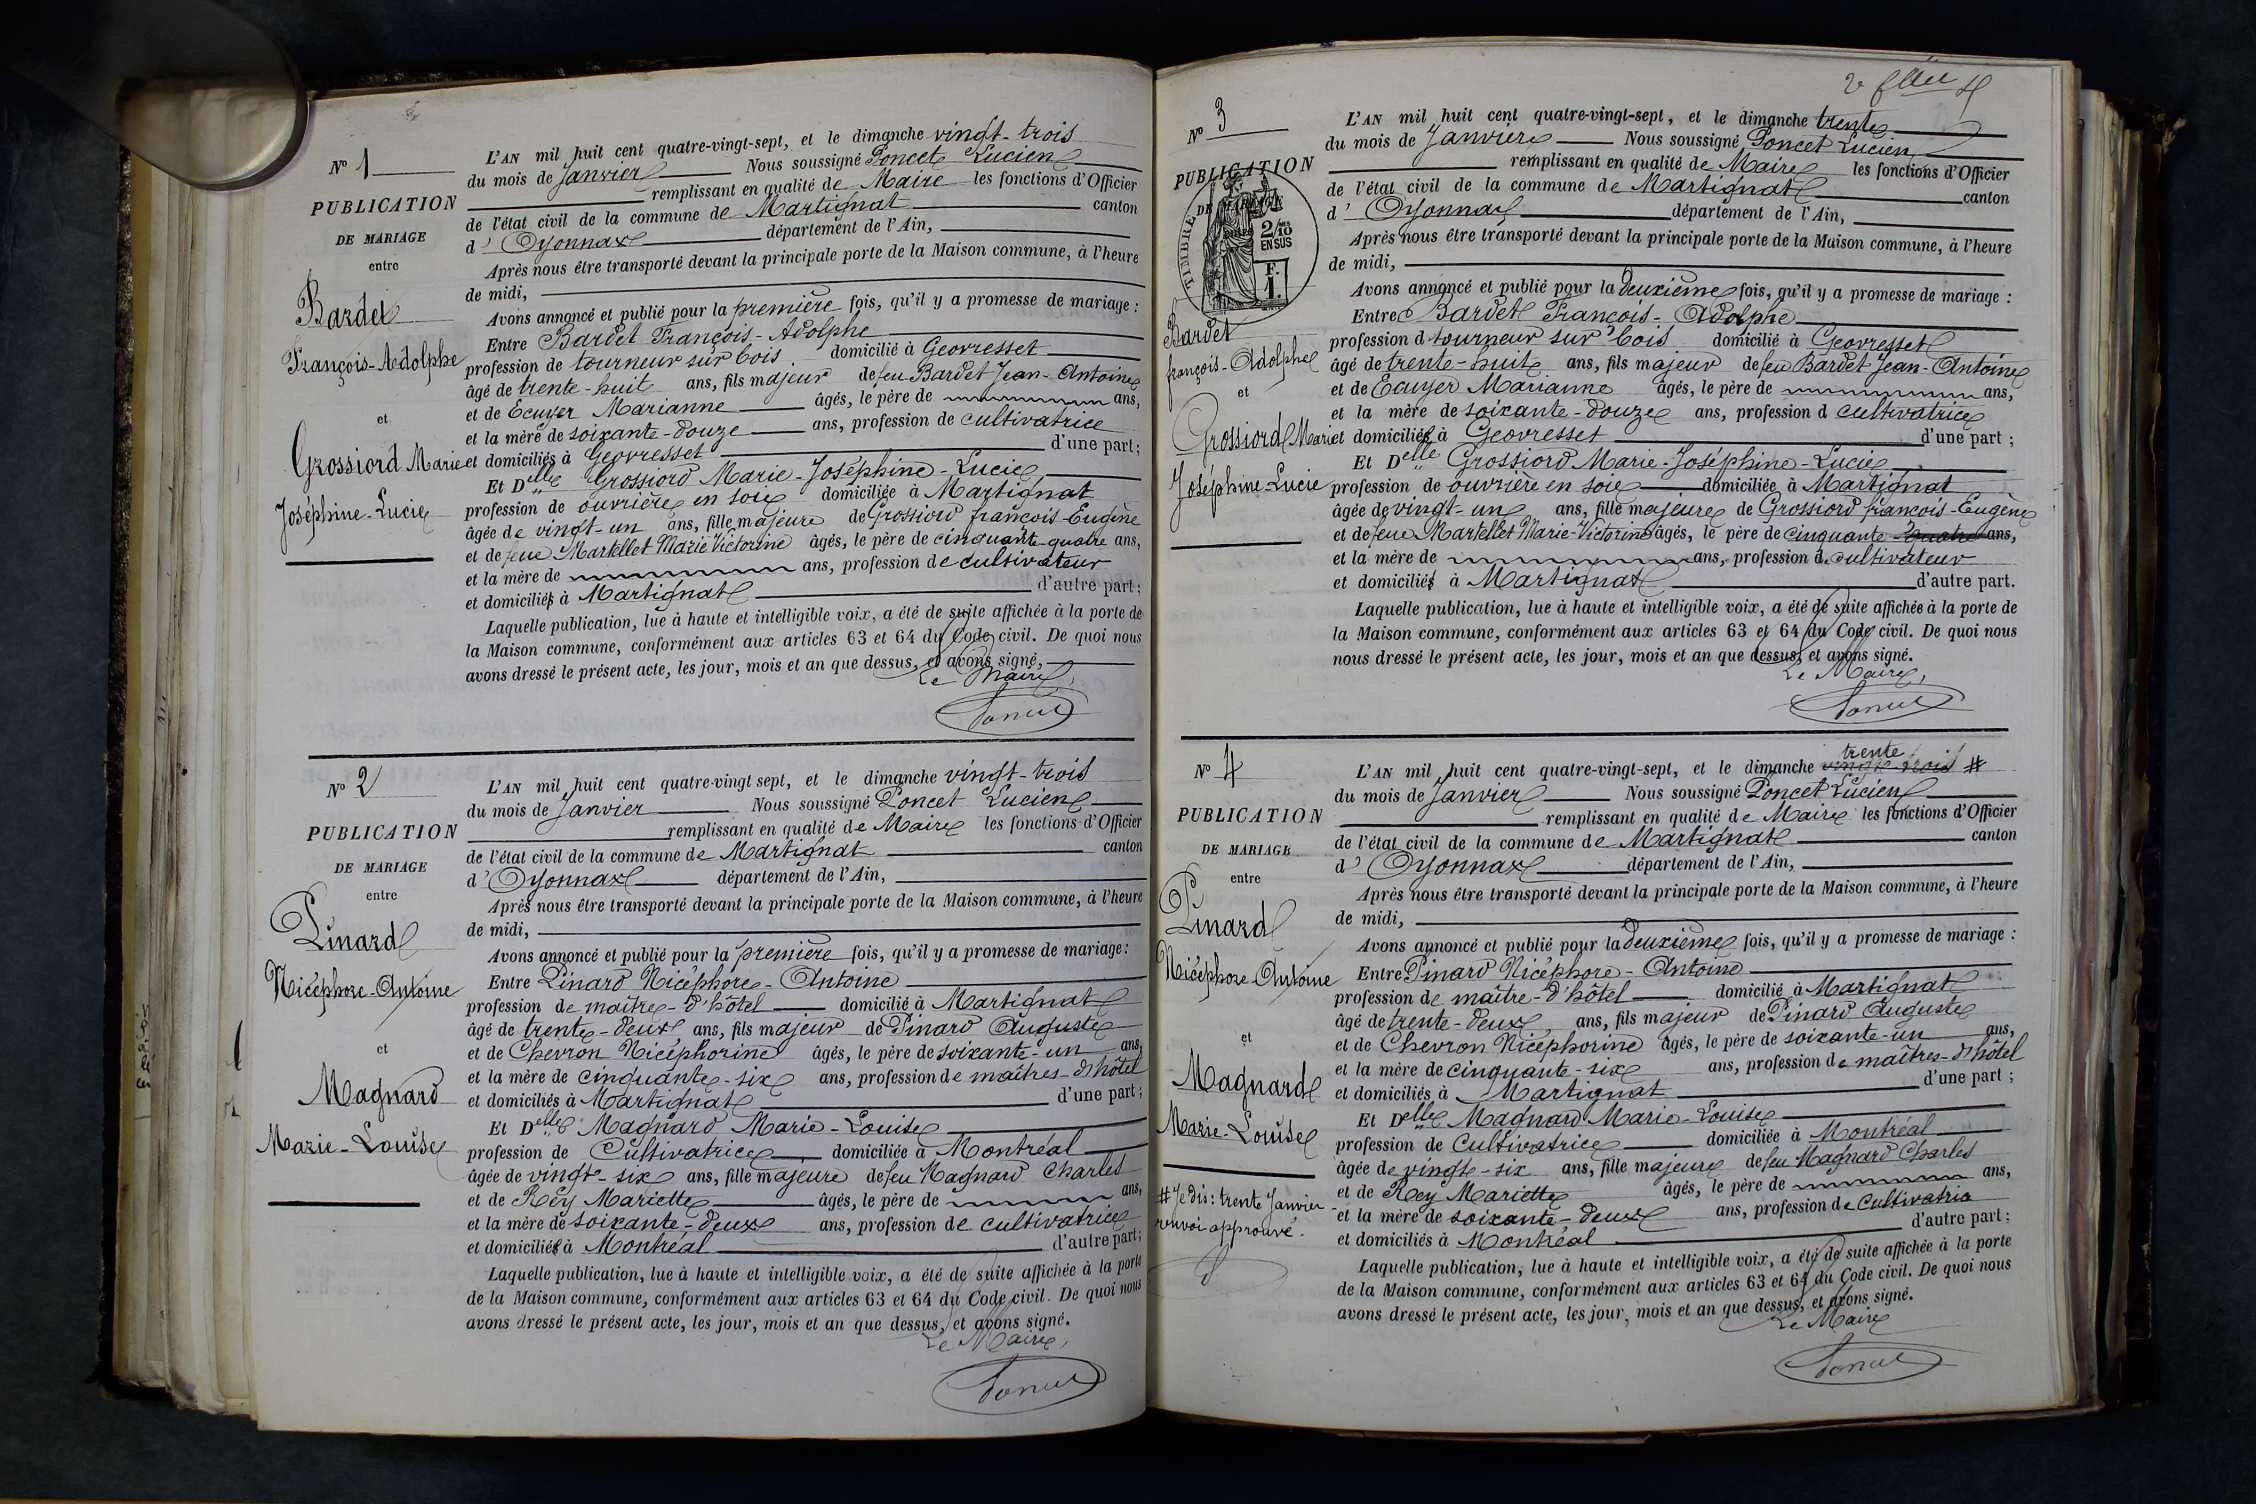 N° 1
PUBLICATION
DE MARIAGE
entre
Bardet
François-Adolphe
et
Grossiord Marie
Joséphine-Lucie
L'AN mil huit cent quatre-vingt-sept, et le dimanche vingt-trois
du mois de Janvier Nous soussigné Poncet Lucien
remplissant en qualité de Maire les fonctions d'Officier
de l'état civil de la commune de Martignat canton
d'Oyonnax département de l'Ain,
Après nous être transporté devant la principale porte de la Maison commune, à l'heure
de midi,
Avons annoncé et publié pour la première fois, qu'il y a promesse de mariage :
Entre Bardet François-Adolphe
profession de tourneur sur bois domicilié à Geovresset
âgé de trente-huit ans, fils majeur de feu Bardet Jean-Antoine
et de Ecuyer Marianne âgés, le père de ans,
et la mère de soixante-douze ans, profession de cultivatrice
et domiciliés à Geovresset d'une part ;
Et Delle Grossiord Marie-Joséphine-Lucie
profession de ouvrière en soie domiciliée à Martignat
âgée de vingt-un ans, fille majeure de Grossiord françois-Eugène
et de feue Martellet Marie Victorine âgés, le père de cinquante-quatre ans,
et la mère de ans, profession de cultivateur
et domiciliés à Martignat d'autre part ;
Laquelle publication, lue à haute et intelligible voix, a été de suite affichée à la porte de
la Maison commune, conformément aux articles 63 et 64 du Code civil. De quoi nous
avons dressé le présent acte, les jour, mois et an que dessus, et avons signé,
Le Maire,
Poncet
N° 2
PUBLICATION
DE MARIAGE
entre
Pinard
Nicéphore-Antoine
et
Magnard
Marie-Louise
L'AN mil huit cent quatre-vingt sept, et le dimanche vingt-trois
du mois de Janvier Nous soussigné Poncet Lucien
remplissant en qualité de Maire les fonctions d'Officier
de l'état civil de la commune de Martignat canton
d'Oyonnax département de l'Ain,
Après nous être transporté devant la principale porte de la Maison commune, à l'heure
de midi,
Avons annoncé et publié pour la première fois, qu'il y a promesse de mariage :
Entre Pinard Nicéphore-Antoine
profession de maître-d'hôtel domicilié à Martignat
âgé de trente-deux ans, fils majeur de Pinard Auguste
et de Chevron Nicéphorine âgés, le père de soixante-un ans,
et la mère de cinquante-six ans, profession de maîtres-d'hôtel
et domiciliés à Martignat d'une part ;
Et Delle Magnard Marie-Louise
profession de Cultivatrice domiciliée à Montréal
âgée de vingt-six ans, fille majeure de feu Magnard Charles
et de Rey Mariette âgés, le père de ans,
et la mère de soixante-deux ans, profession de cultivatrice
et domiciliés à Montréal d'autre part ;
Laquelle publication, lue à haute et intelligible voix, a été de suite affichée à la porte
de la Maison commune, conformément aux articles 63 et 64 du Code civil. De quoi nous
avons dressé le présent acte, les jour, mois et an que dessus, et avons signé.
Le Maire,
Poncet
N° 3
PUBLICATION
DE MARIAGE
TIMBRE
2/10
EN SUS
F.
1.
Bardet
françois-Adolphe
et
Grossiord Marie
Joséphine-Lucie
L'AN mil huit cent quatre-vingt-sept, et le dimanche trente
du mois de Janvier Nous soussigné Poncet Lucien
remplissant en qualité de Maire les fonctions d'Officier
de l'état civil de la commune de Martignat canton
d'Oyonnax département de l'Ain,
Après nous être transporté devant la principale porte de la Maison commune, à l'heure
de midi,
Avons annoncé et publié pour la deuxième fois, qu'il y a promesse de mariage :
Entre Bardet François-Adolphe
profession d tourneur sur bois domicilié à Geovresset
âgé de trente-huit ans, fils majeur de feu Bardet Jean-Antoine
et de Ecuyer Marianne âgés, le père de ans,
et la mère de soixante-douze ans, profession d cultivatrice
et domiciliés à Geovresset d'une part ;
Et Delle Grossiord Marie-Joséphine-Lucie
profession de ouvrière en soie domiciliée à Martignat
âgée de vingt-un ans, fille majeure de Grossiord françois-Eugène
et de feue Martellet Marie-Victorine âgés, le père de cinquante quatre ans,
et la mère de ans, profession de cultivateur
et domiciliés à Martignat d'autre part.
Laquelle publication, lue à haute et intelligible voix, a été de suite affichée à la porte de
la Maison commune, conformément aux articles 63 et 64 du Code civil. De quoi nous
nous dressé le présent acte, les jour, mois et an que dessus, et avons signé.
Le Maire,
Poncet
N° 4
PUBLICATION
DE MARIAGE
entre
Pinard
Nicéphore-Antoine
et
Magnard
Marie-Louise
# Je dis : trente Janvier
renvoi approuvé.
trente
L'AN mil huit cent quatre-vingt-sept, et le dimanche vingt-trois #
du mois de Janvier Nous soussigné Poncet Lucien
remplissant en qualité de Maire les fonctions d'Officier
de l'état civil de la commune de Martignat canton
d'Oyonnax département de l'Ain,
Après nous être transporté devant la principale porte de la Maison commune, à l'heure
de midi,
Avons annoncé et publié pour la deuxième fois, qu'il y a promesse de mariage :
Entre Pinard Nicéphore-Antoine
profession de maître-d'hôtel domicilié à Martignat
âgé de trente-deux ans, fils majeur de Pinard Auguste
et de Chevron Nicéphorine âgés, le père de soixante-un ans,
et la mère de cinquante-six ans, profession de maîtres-d'hôtel
et domiciliés à Martignat d'une part ;
Et Delle Magnard Marie-Louise
profession de Cultivatrice domiciliée à Montréal
âgée de vingt-six ans, fille majeure de feu Magnard Charles
et de Rey Mariette âgés, le père de ans,
et la mère de soixante-deux ans, profession de cultivatrice
et domiciliés à Montréal d'autre part ;
Laquelle publication, lue à haute et intelligible voix, a été de suite affichée à la porte
de la Maison commune, conformément aux articles 63 et 64 du Code civil. De quoi nous
avons dressé le présent acte, les jour, mois et an que dessus, et avons signé.
Le Maire
Poncet